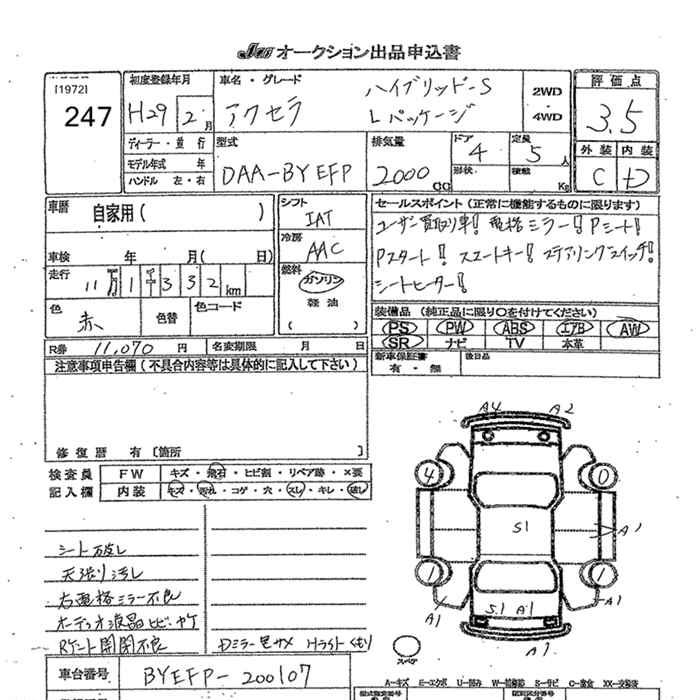 JAA オークション出品申込書
[1972]
247
初度登録年月
H29 2 月
ディーラー・並 行
モデル年式 年
ハンドル 左・右
車名・グレード
アクセラ ハイブリッド-S
Lパッケージ
2WD
4WD
型式
DAA-BYEFP
排気量
2000 cc
ドア
4
形状
定員
5 人
積載
Kg
評価点
3.5
外装 内装
C D
車歴
自家用( )
車検 年 月( 日)
走行
11万1千332km
色
赤
色替
色コード
シフト
IAT
冷房
AAC
燃料
ガソリン
軽油
( )
セールスポイント(正常に機能するものに限ります)
ユーザー買取り車! 電格ミラー! Pシート!
Pスタート! スマートキー! ステアリングスイッチ!
シートヒーター!
装備品(純正品に限り○を付けてください)
PS PW ABS エアB AW
SR ナビ TV 本革
新車保証書
有・無
後日品
R券 11,070 円
名変期限 月 日
注意事項申告欄(不具合内容等は具体的に記入して下さい)
修復歴 有 [箇所 ]
検査員
記入欄
FW キズ・飛石・ヒビ割・リペア跡・×要
内装 キズ・汚れ・コゲ・穴・スレ・キレ・破し
シート破レ
天張り汚レ
右電格ミラー不良
オーディオ液晶ヒビ・ヤケ
Rゲート開閉不良
Dミラー色サメ Hライトくもり
A4 A2
4 0
S1
A1
1 1
A1 S1 A1 A1
A1
スペア
車台番号 BYEFP-200107
A-キズ E-エクボ U-凹み W-補修跡 S-サビ C-腐食 XX-交換済